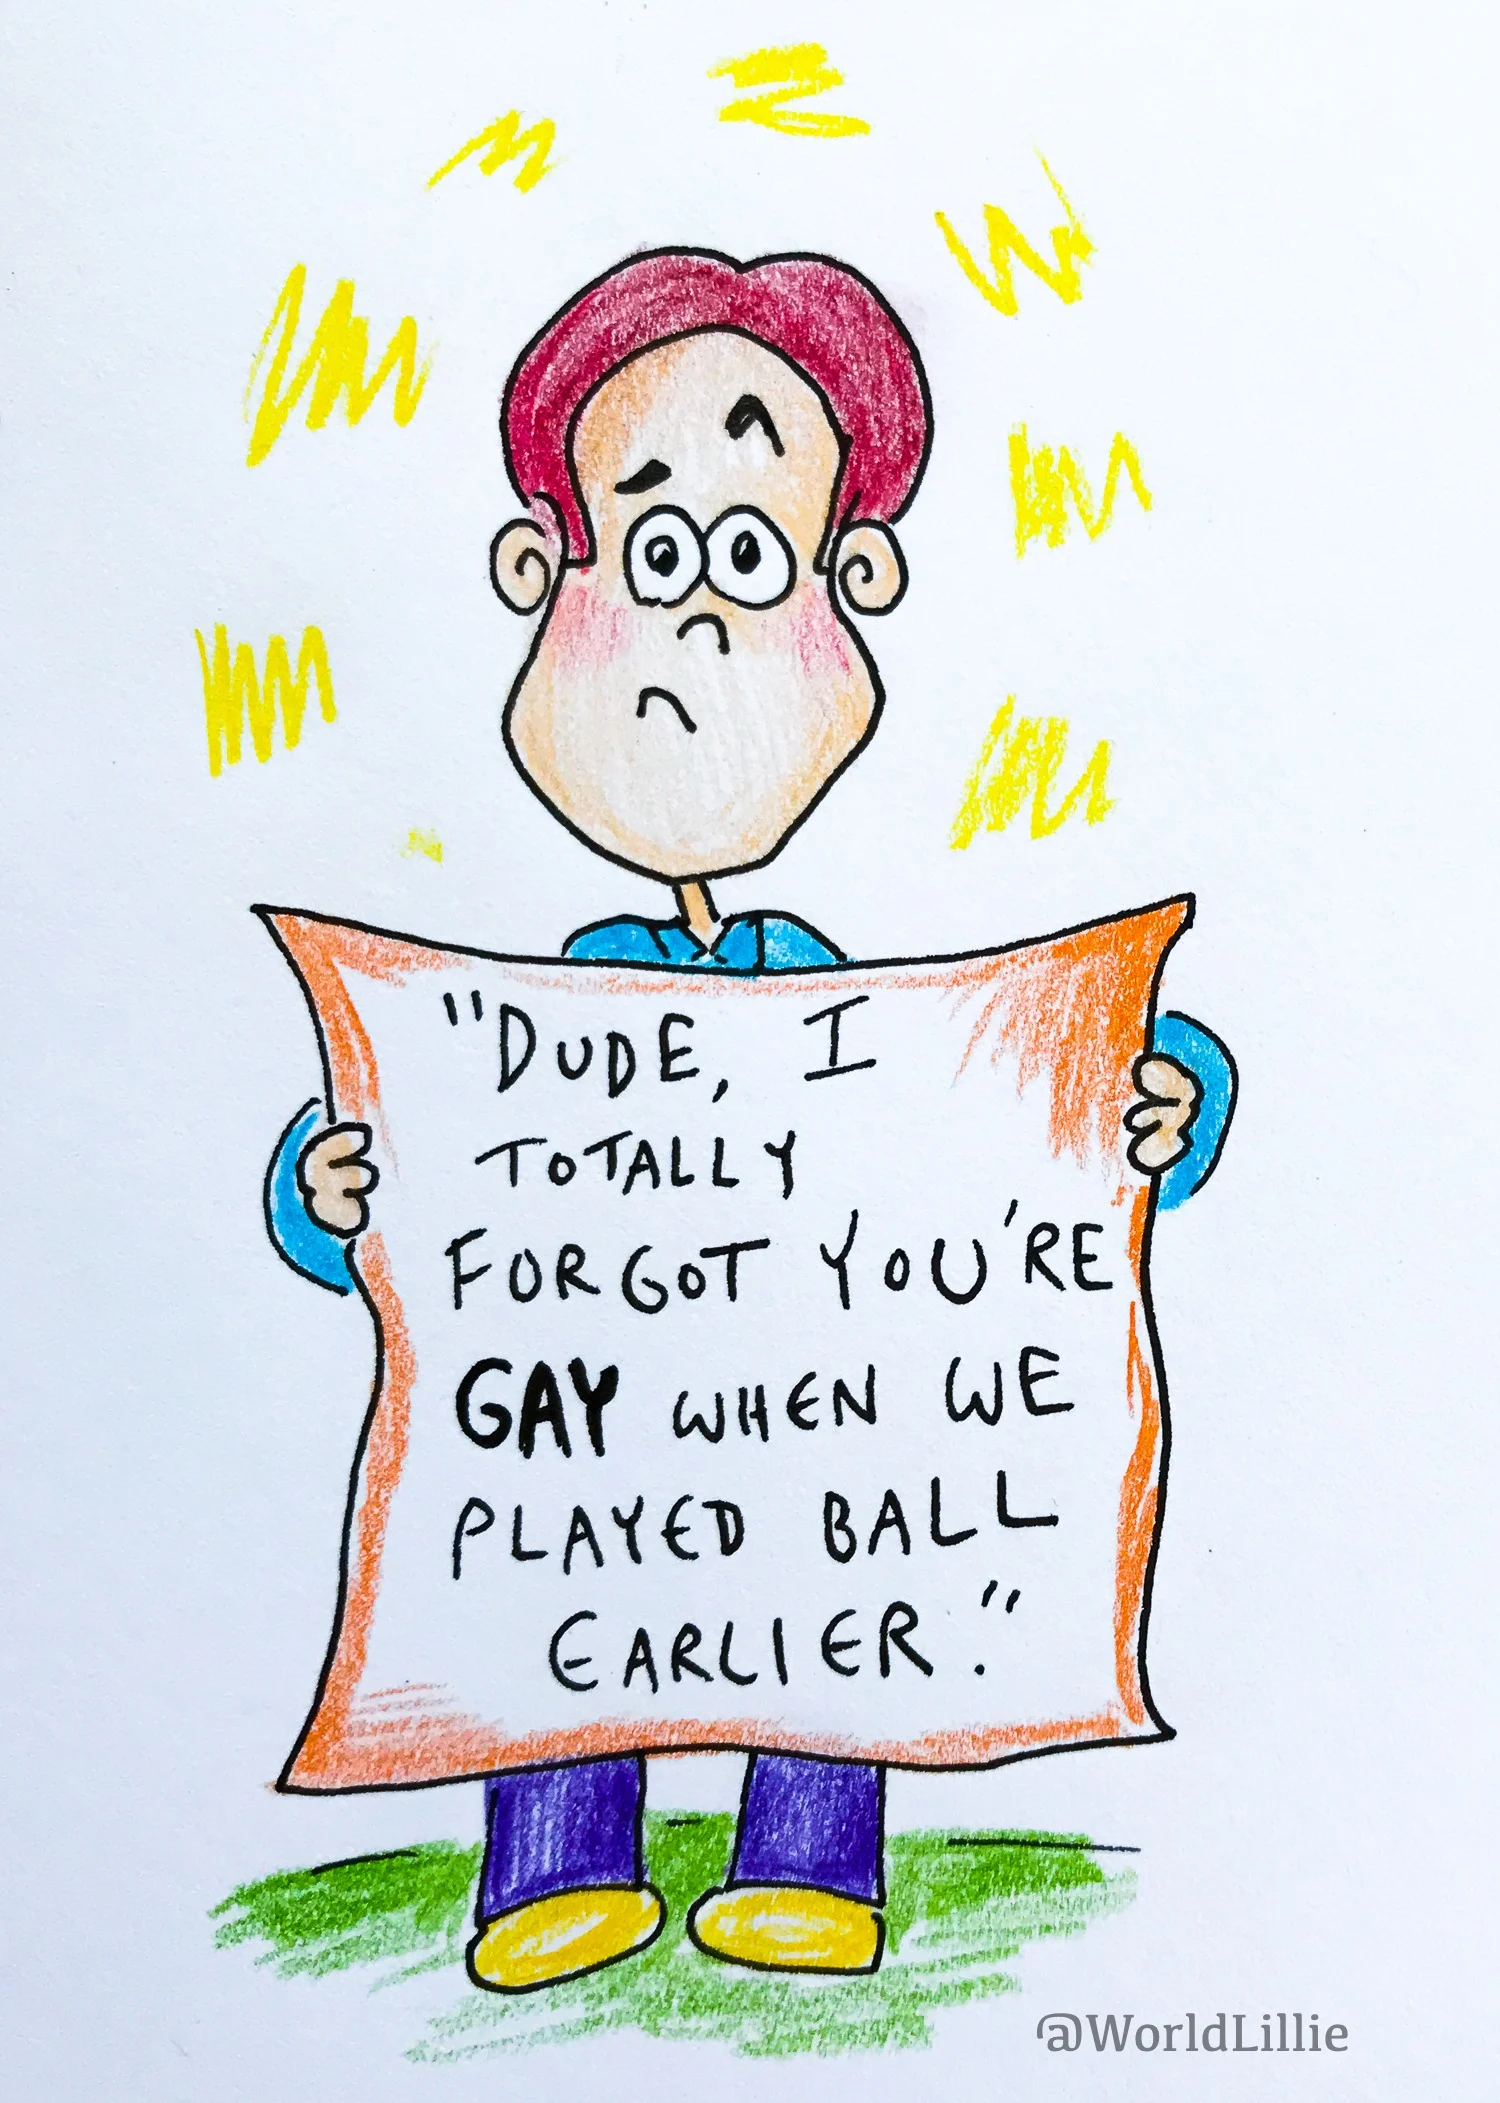 "DUDE, I
TOTALLY
FORGOT YOU'RE
GAY WHEN WE
PLAYED BALL
EARLIER."
@WorldLillie